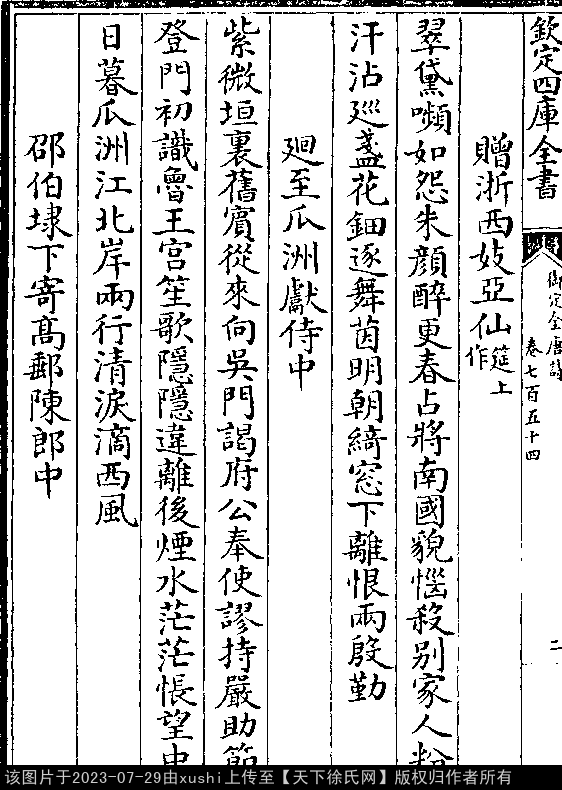 欽定四庫全書
御定全唐詩
卷七百五十四
二
贈浙西妓亞仙
筵上
作
翠黛嚬如怨朱顔醉更春占將南國貌惱殺别家人粉
汗沾廵盞花鈿逐舞茵明朝綺窓下離恨兩殷勤
廻至瓜洲獻侍中
紫微垣裏舊賓從來向吳門謁府公奉使謬持嚴助節
登門初識魯王宫笙歌隱隱違離後煙水茫茫悵望中
日暮瓜洲江北岸兩行清淚滴西風
邵伯埭下寄髙郵陳郎中
该图片于2023-07-29由xushi上传至【天下徐氏网】版权归作者所有